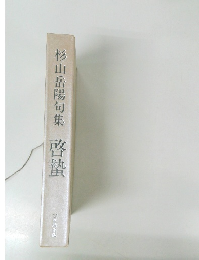 杉山岳陽句集
啓蟄